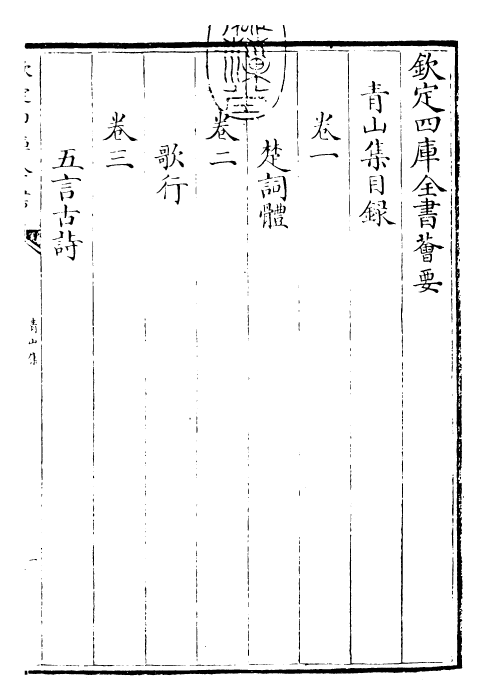 欽定四庫全書薈要
青山集目録
卷一
楚詞體
卷二
歌行
卷三
五言古詩
青山集
一